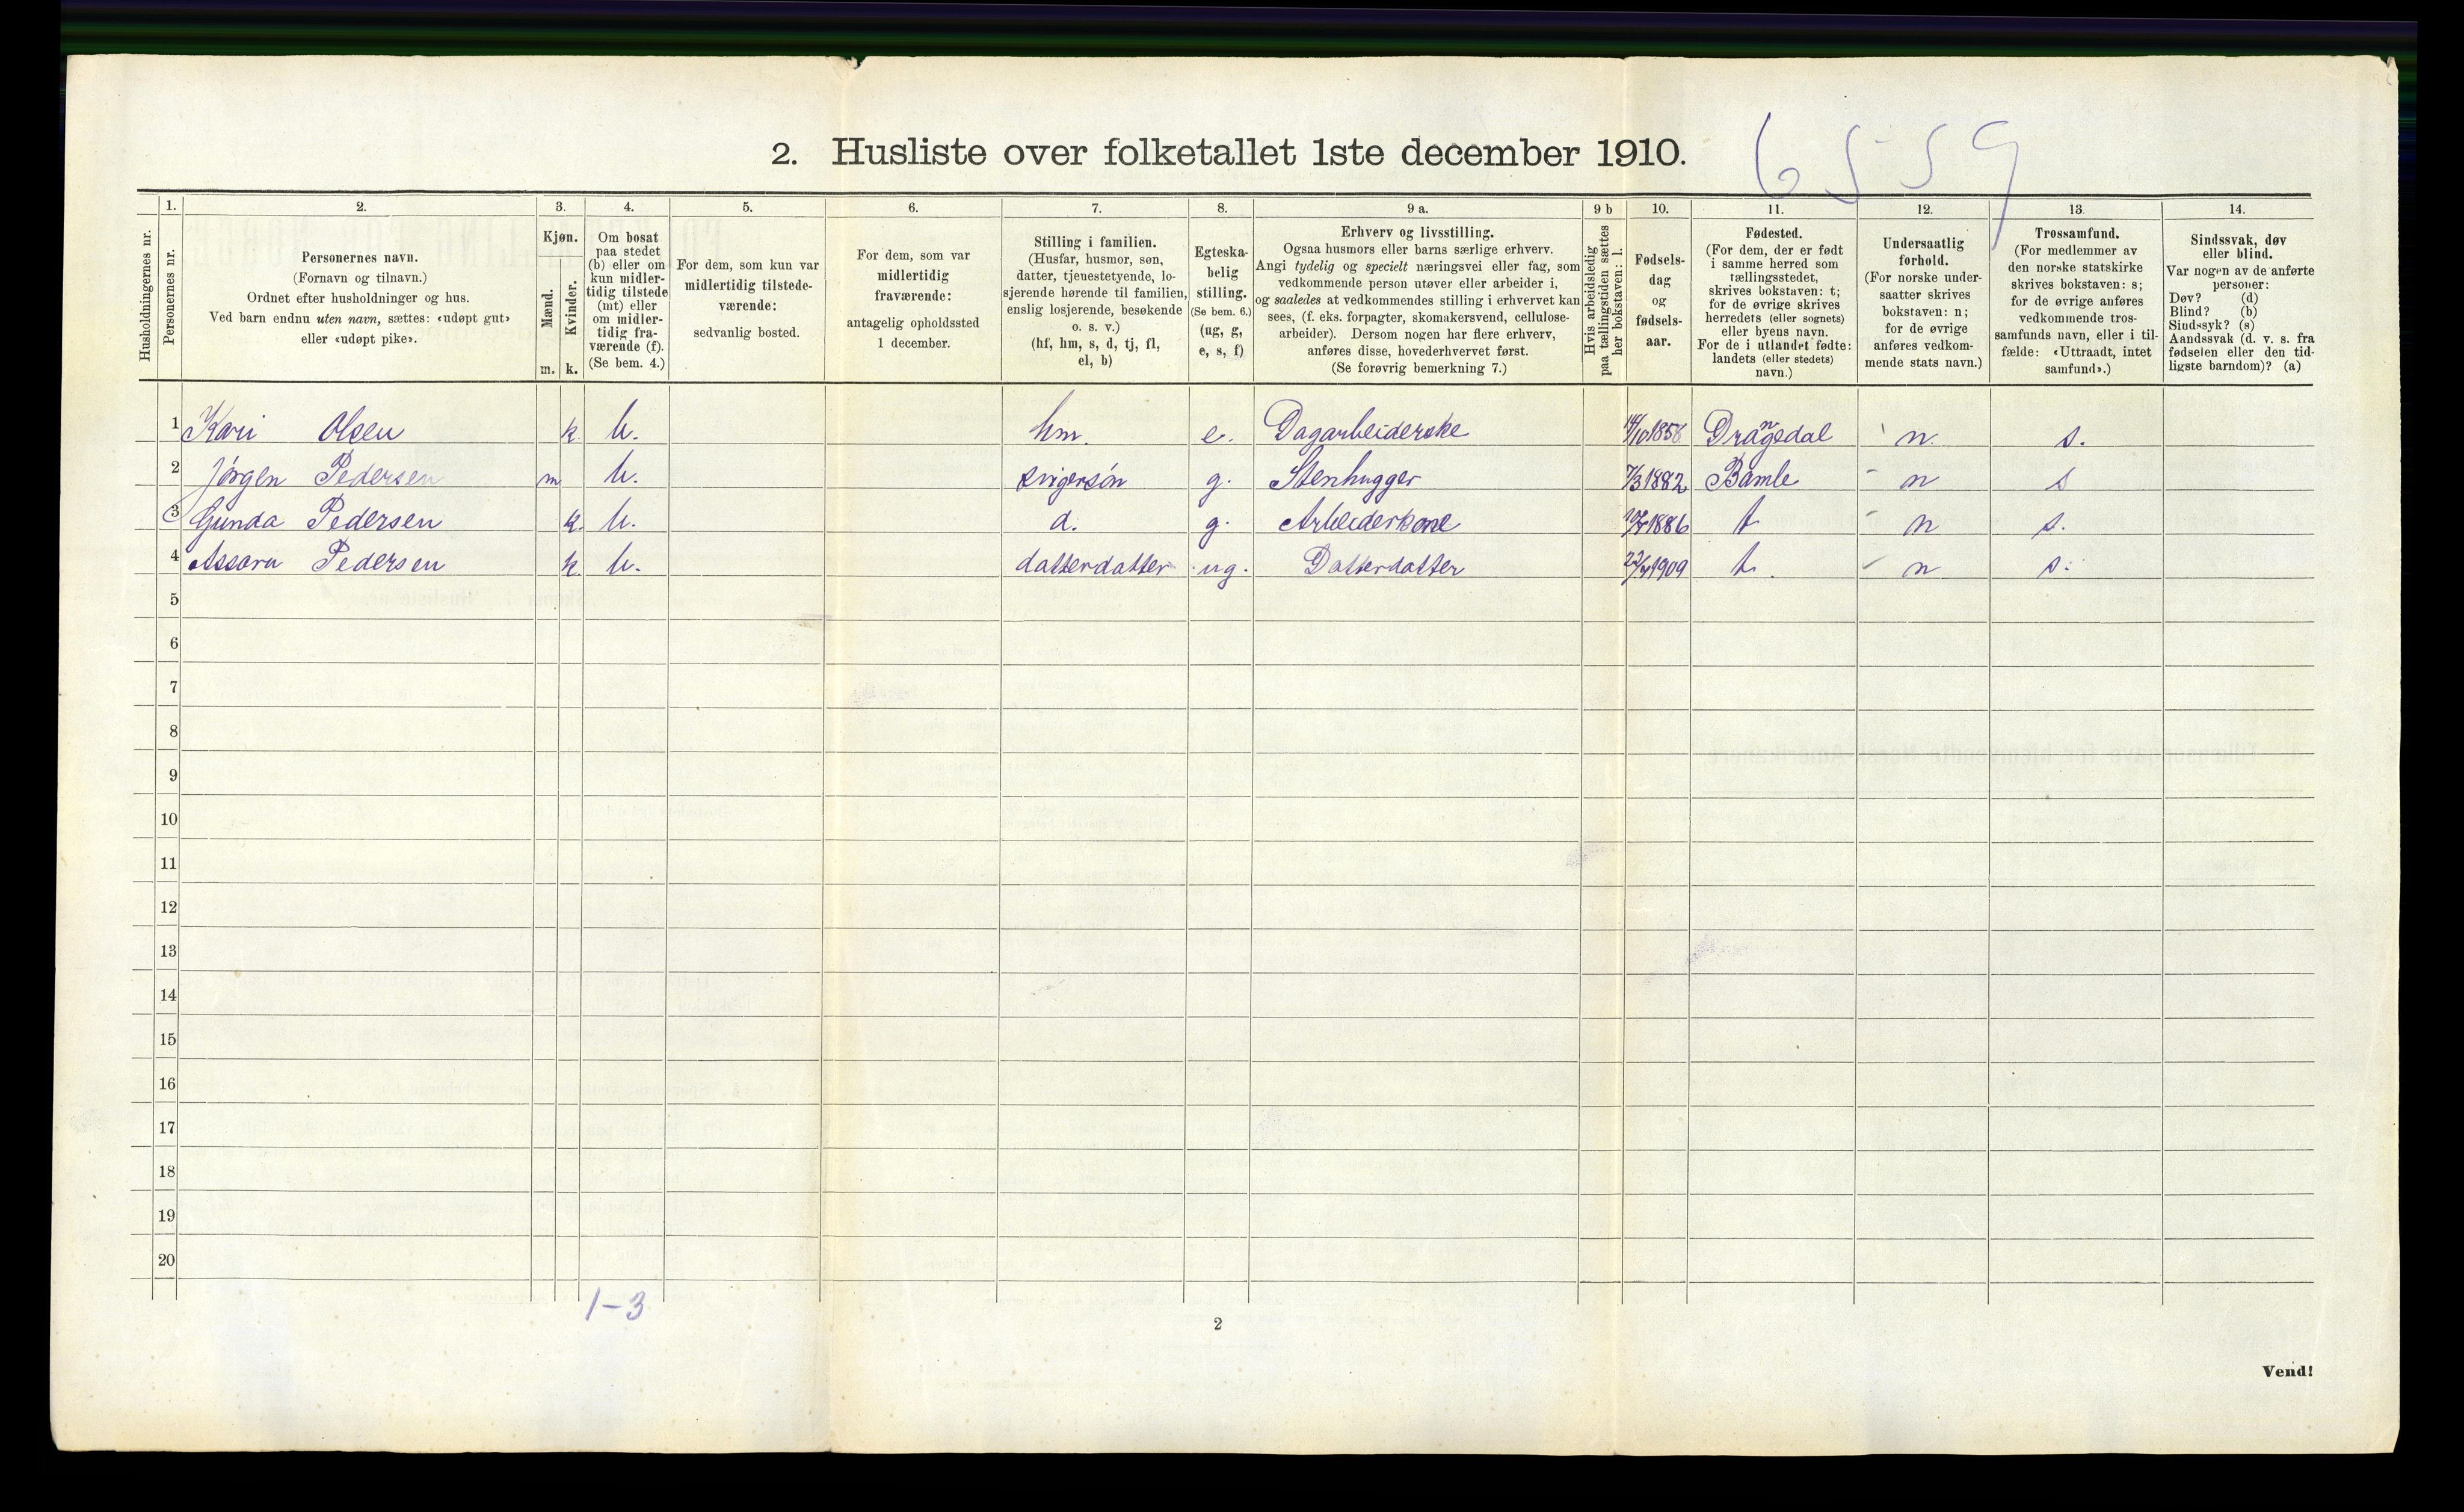 2. Husliste over folketallet 1ste december 1910.
6559
Husholdningernes nr.
1.
Personernes nr.
2.
Personernes navn.
(Fornavn og tilnavn.)
Ordnet efter husholdninger og hus.
Ved barn endnu uten navn, sættes: «udøpt gut»
eller «udøpt pike».
3.
Kjøn.
Mænd.
Kvinder.
m. k.
4.
Om bosat
paa stedet
(b) eller om
kun midler-
tidig tilstede
(mt) eller
om midler-
tidig fra-
værende (f).
(Se bem. 4.)
5.
For dem, som kun var
midlertidig tilstede-
værende:
sedvanlig bosted.
6.
For dem, som var
midlertidig
fraværende:
antagelig opholdssted
1 december.
7.
Stilling i familien.
(Husfar, husmor, søn,
datter, tjenestetyende, lo-
sjerende hørende til familien,
enslig losjerende, besøkende
o. s. v.)
(hf, hm, s, d, tj, fl,
el, b)
8.
Egteska-
belig
stilling.
(Se bem. 6.)
(ug, g,
e, s, f)
9 a.
Erhverv og livsstilling.
Ogsaa husmors eller barns særlige erhverv.
Angi tydelig og specielt næringsvei eller fag, som
vedkommende person utøver eller arbeider i,
og saaledes at vedkommendes stilling i erhvervet kan
sees, (f. eks. forpagter, skomakersvend, cellulose-
arbeider). Dersom nogen har flere erhverv,
anføres disse, hovederhvervet først.
(Se forøvrig bemerkning 7.)
9 b
Hvis arbeidsledig
paa tællingstiden sættes
her bokstaven: l.
10.
Fødsels-
dag
og
fødsels-
aar.
11.
Fødested.
(For dem, der er født
i samme herred som
tællingsstedet,
skrives bokstaven: t;
for de øvrige skrives
herredets (eller sognets)
eller byens navn.
For de i utlandet fødte:
landets (eller stedets)
navn.)
12.
Undersaatlig
forhold.
(For norske under-
saatter skrives
bokstaven: n;
for de øvrige
anføres vedkom-
mende stats navn.)
13.
Trossamfund.
(For medlemmer av
den norske statskirke
skrives bokstaven: s;
for de øvrige anføres
vedkommende tros-
samfunds navn, eller i til-
fælde: «Uttraadt, intet
samfund».)
14.
Sindssvak, døv
eller blind.
Var nogen av de anførte
personer:
Døv? (d)
Blind? (b)
Sindssyk? (s)
Aandssvak (d. v. s. fra
fødselen eller den tid-
ligste barndom)? (a)
1 Kari Olsen k. b. hm. e. Dagarbeiderske 14/10 1858 Drangedal n. s.
2 Jørgen Pedersen m b. svigersøn g. Stenhugger 7/3 1882 Bamle n s
3 Gunda Pedersen k. b. d. g. Arbeiderkone 1886 t n s.
4 Assora Pedersen k. b. datterdatter ug. Datterdatter 1909 t. n s.
5
6
7
8
9
10
11
12
13
14
15
16
17
18
19
20
1-3
2
Vend!